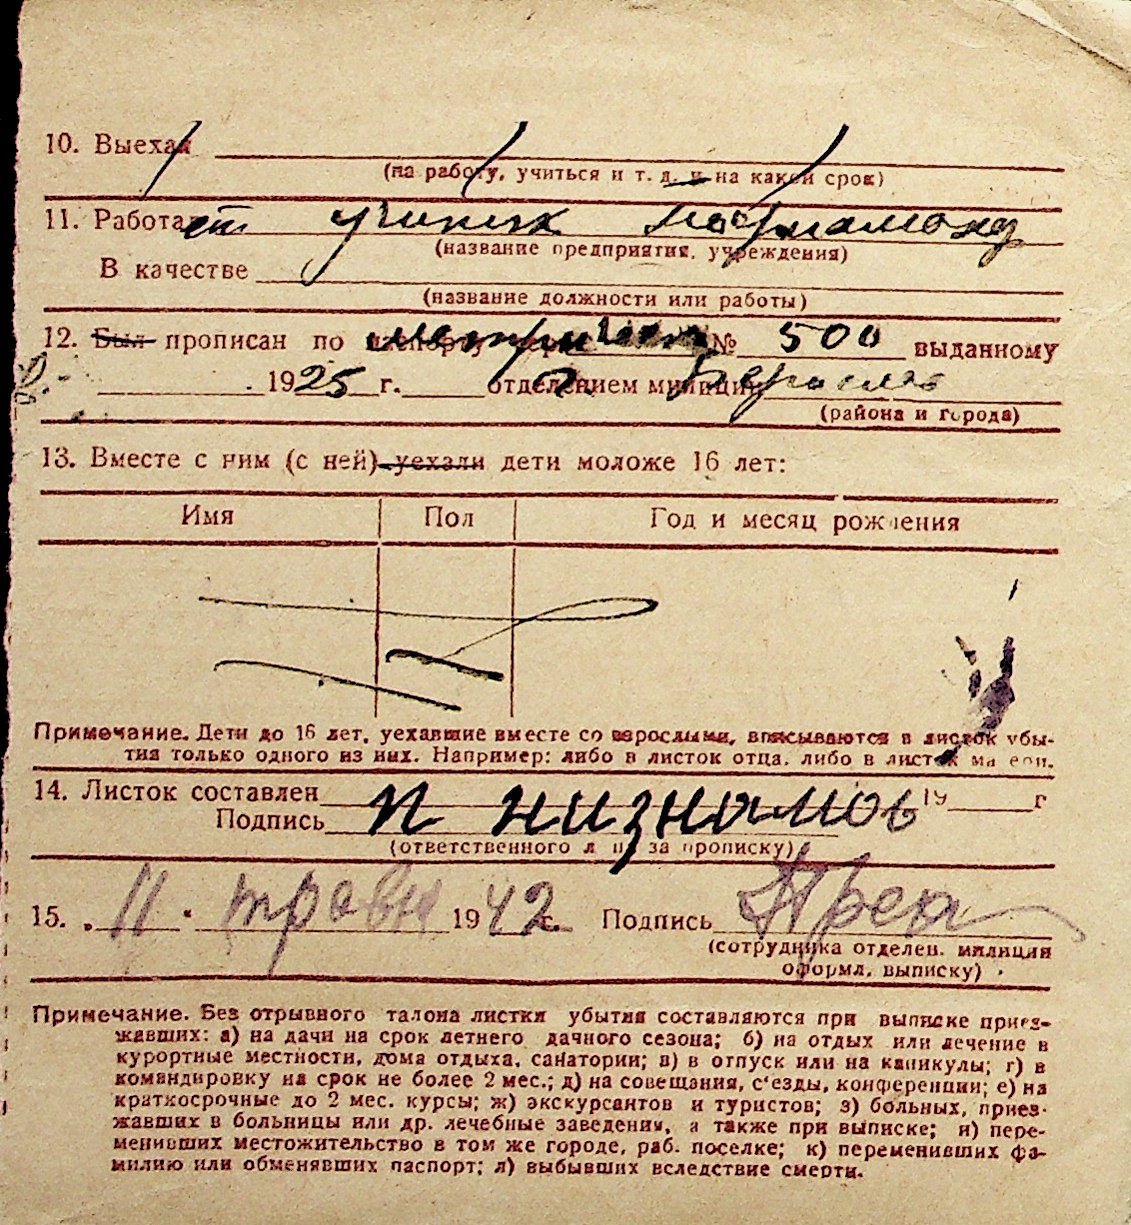 10. Выехал
(на работу, учиться и т. д. и на какой срок)
11. Работает
(название предприятия, учреждения)
В качестве
(название должности или работы)
12. Был прописан по № 500 выданному
1925 г. отделением милиции
(района и города)
13. Вместе с ним (с ней) уехали дети моложе 16 лет:
Имя Пол Год и месяц рождения
Примечание. Дети до 16 лет, уехавшие вместе со взрослыми, вписываются в листок убы-
тия только одного из них. Например: либо в листок отца, либо в листок ма
14. Листок составлен 19 г
Подпись
(ответственного за прописку)
15. " 11 " травня 1942 г. Подпись
(сотрудника отделен. милиции
оформл. выписку)
Примечание. Без отрывного талона листки убытия составляются при выписке приез-
жавших: а) на дачи на срок летнего дачного сезона; б) на отдых или лечение в
курортные местности, дома отдыха, санатории; в) в отпуск или на каникулы; г) в
командировку на срок не более 2 мес.; д) на совещания, с'езды, конференции; е) на
краткосрочные до 2 мес. курсы; ж) экскурсантов и туристов; з) больных, приез-
жавших в больницы или др. лечебные заведения, а также при выписке; и) пере-
менивших местожительство в том же городе, раб. поселке; к) переменивших фа-
милию или обменявших паспорт; л) выбывших вследствие смерти.